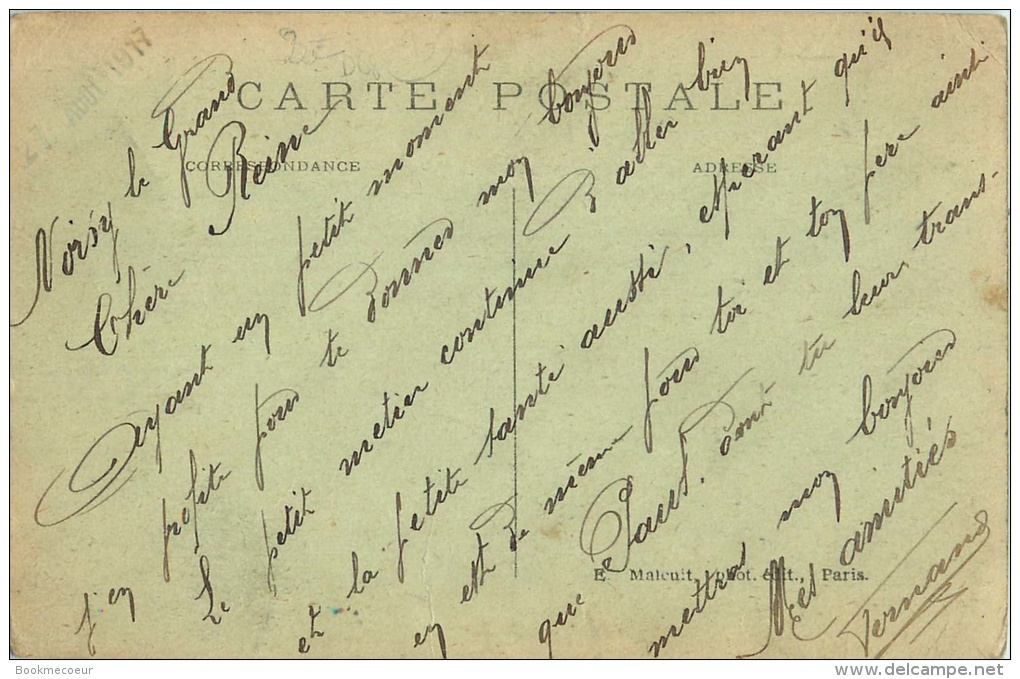 CARTE POSTALE
CORRESPONDANCE
ADRESSE
Noisy le Grand
Chère Reine
Ayant un petit moment
j'en profite pour te donner mon bonjour
Le petit metier continue d'aller bien
et la petite santé aussi, esperant qu'il
en est de même pour toi et ton père ainsi
que Paul. Dont tu leur trans-
mettras mon bonjour
Mes amitiés
Fernand
E. Maleuit, phot. édit., Paris.
Bookmecoeur
www.delcampe.net